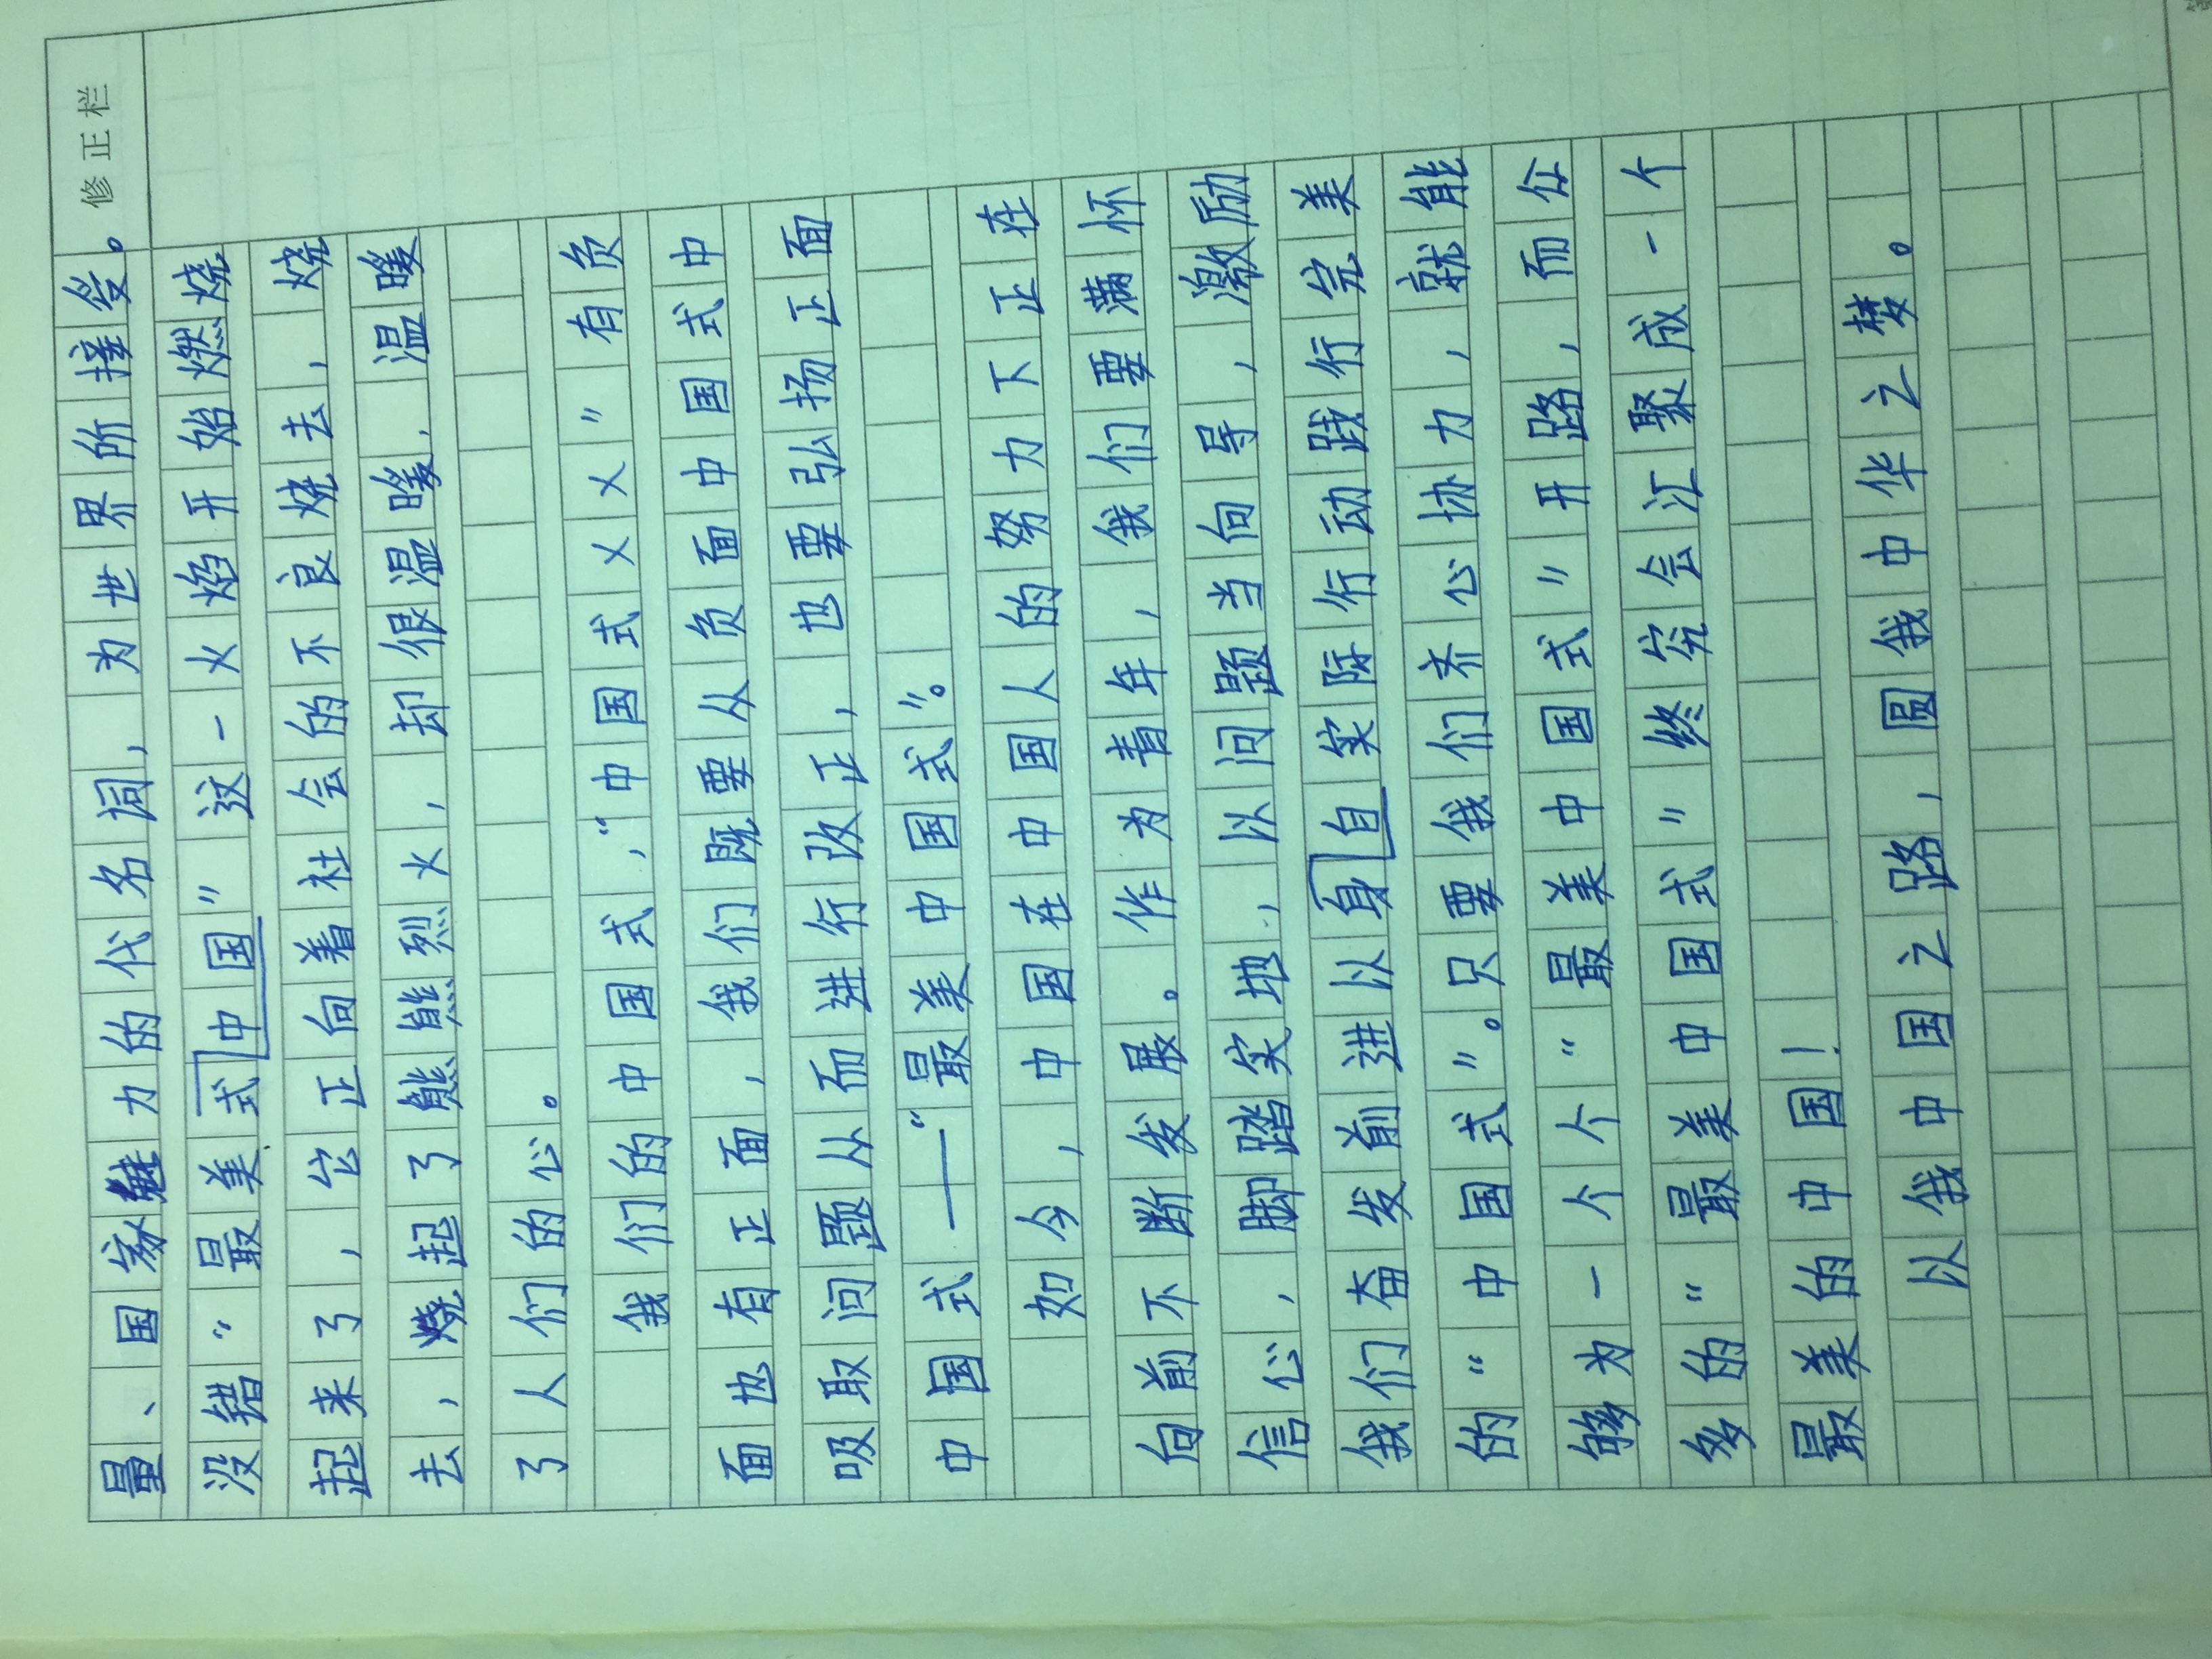 修正栏
量、国家魅力的代名词，为世界所接受。
没错“最美式中国”这一火焰开始燃烧
起来了，它正向着社会的不良烧去，烧
去，烧起了熊熊烈火，却很温暖，温暖
了人们的心。
我们的中国式，“中国式××”有负
面也有正面，我们既要从负面中国式中
吸取问题从而进行改正，也要弘扬正面
中国式——“最美中国式”。
如今，中国在中国人的努力下正在
向前不断发展。作为青年，我们要满怀
信心，脚踏实地，以问题当向导，激励
我们奋发前进以身自实际行动践行完美
的“中国式”。只要我们齐心协力，就能
够为一个个“最美中国式”开路，而众
多的“最美中国式”终究会汇聚成一个
最美的中国！
以我中国之路，圆我中华之梦。